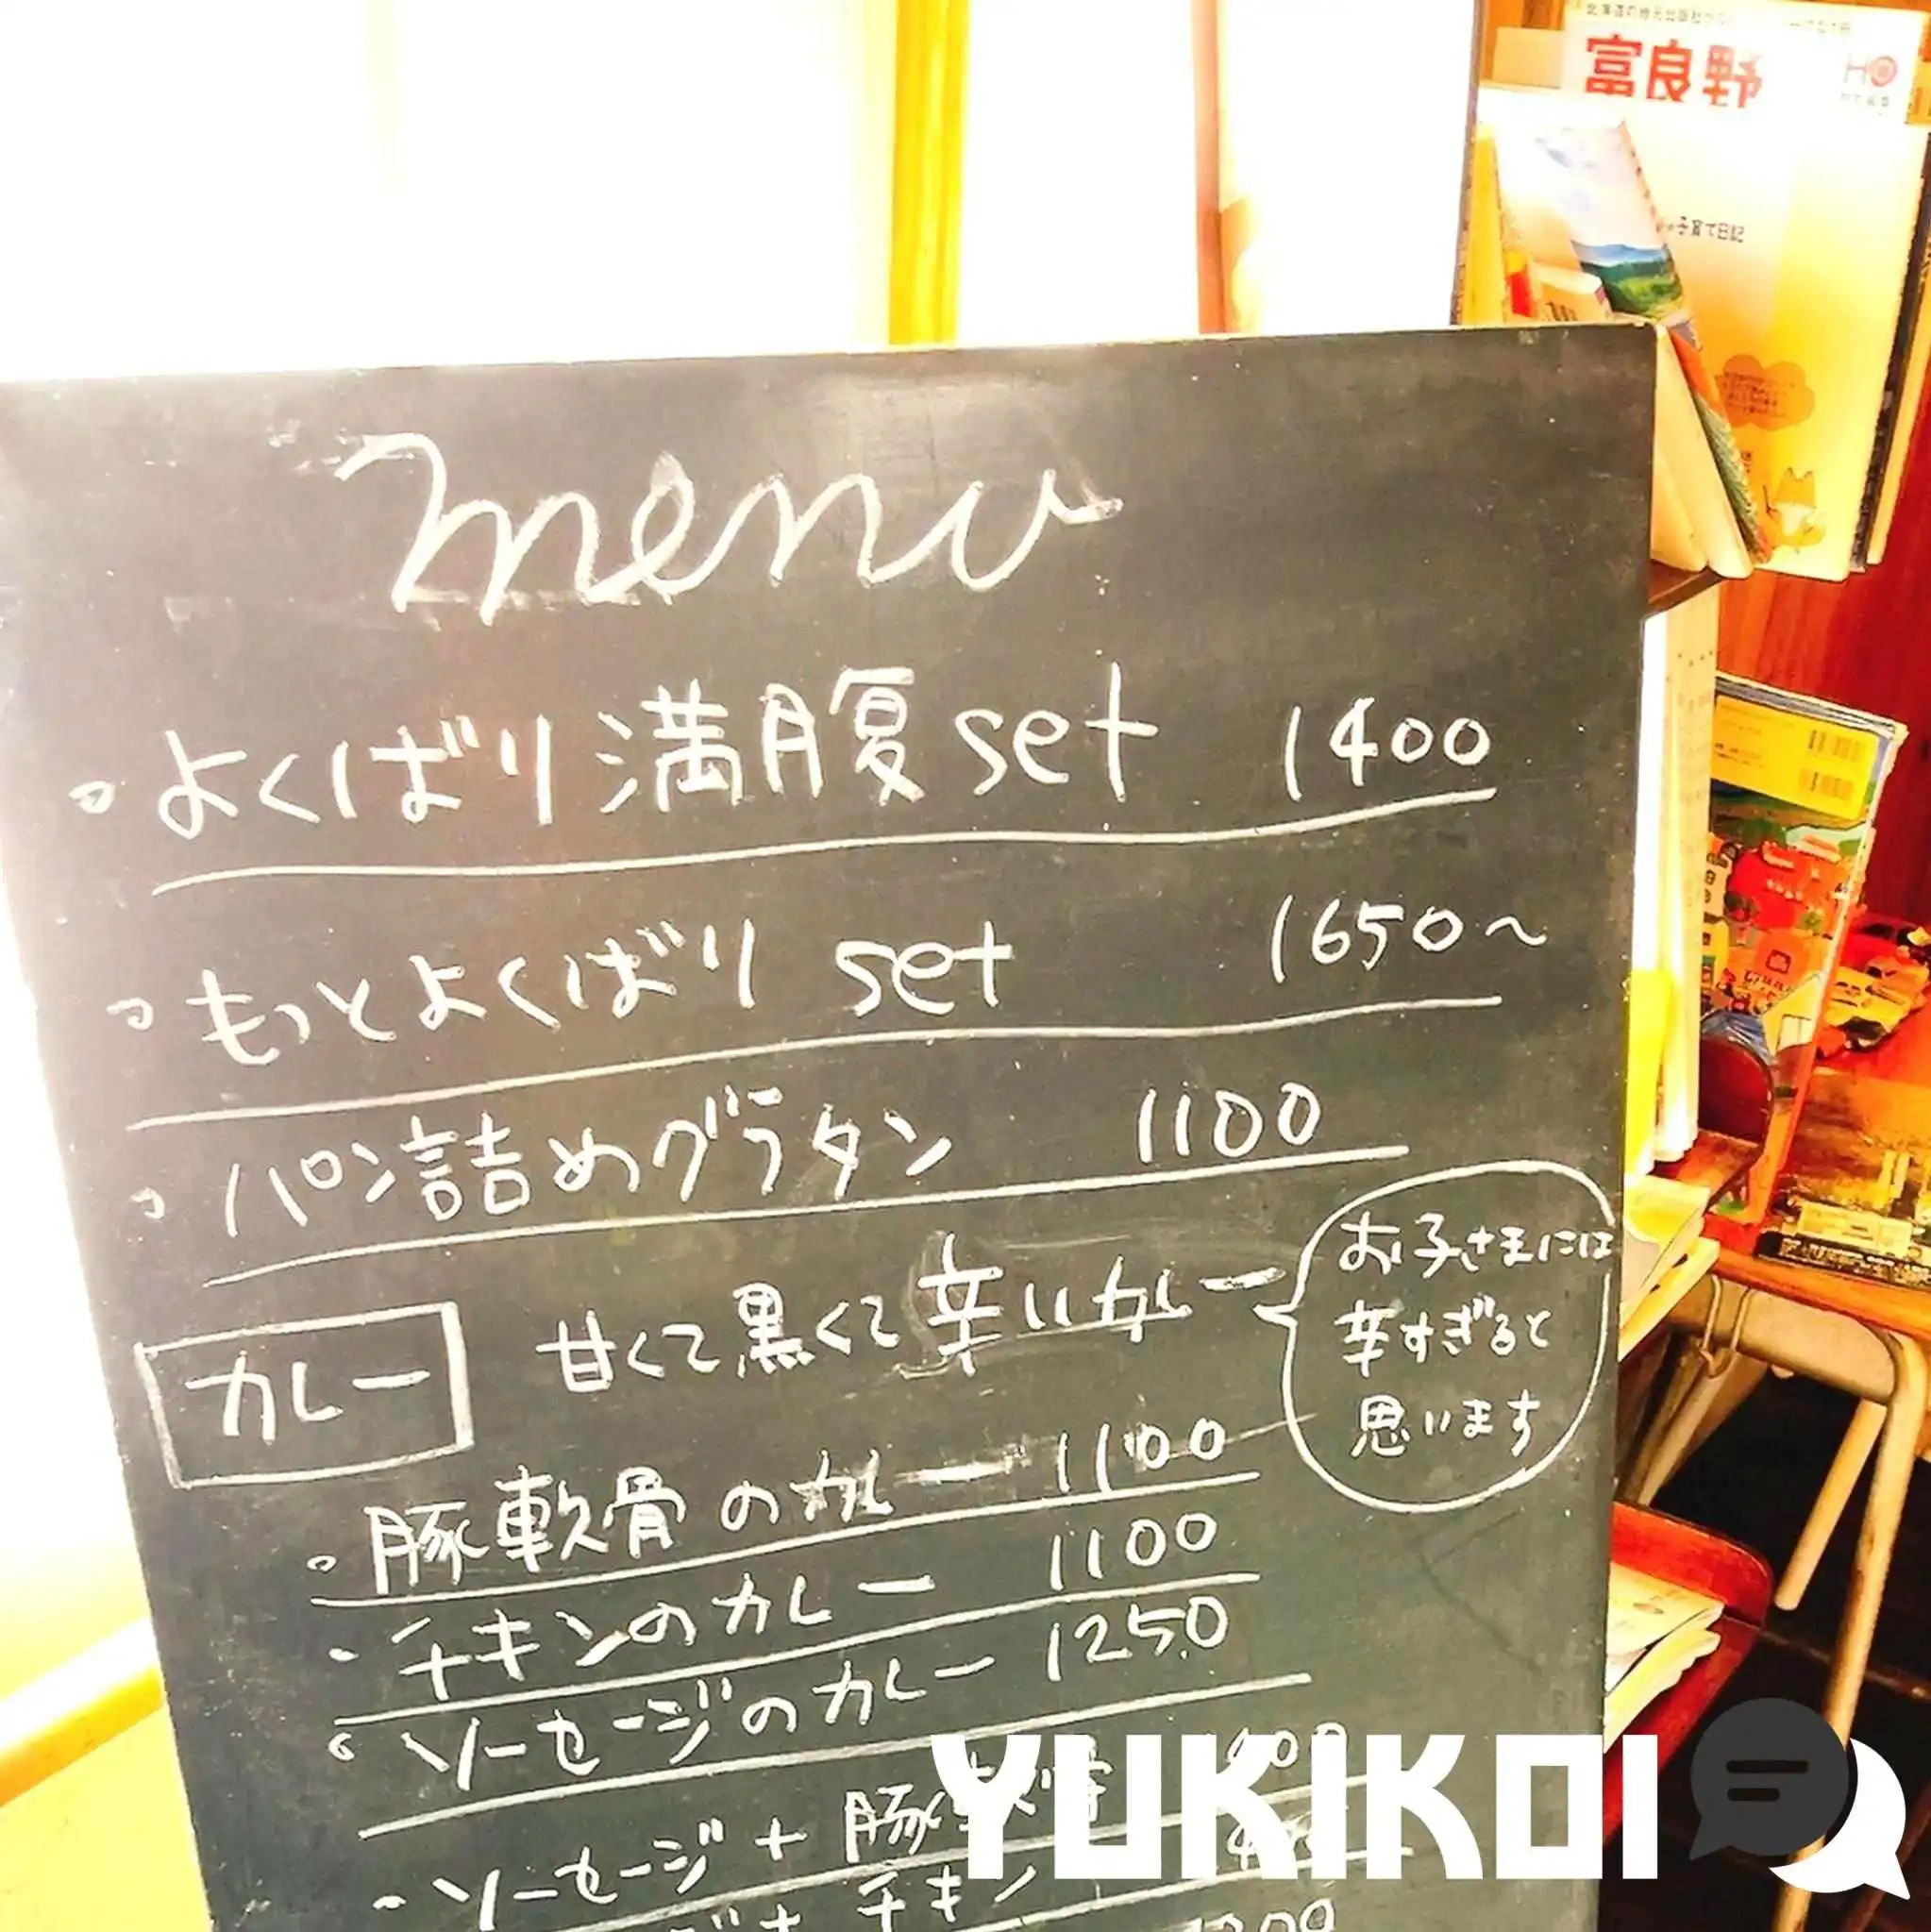 富良野
HO
子育て日記
menu
・よくばり満腹set 1400
・もっとよくばりset 1650〜
・パン詰めグラタン 1100
カレー 甘くて黒くて辛いカレー
お子さまには
辛すぎると
思います
・豚軟骨のカレー 1100
・チキンのカレー 1100
・ソーセージのカレー 1250
・ソーセージ+豚軟骨
チキン
YUKIKOI